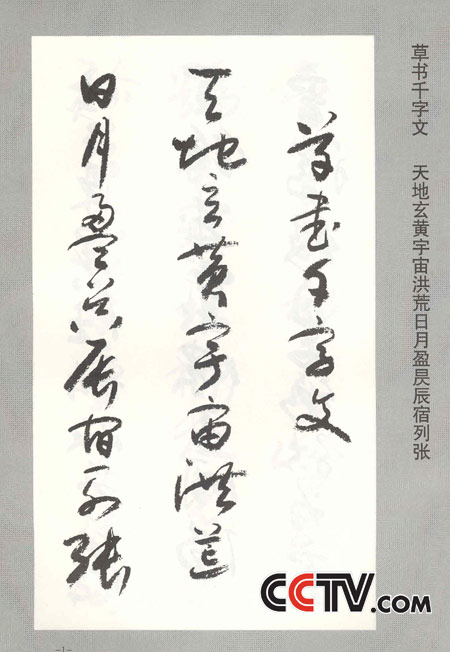 草书千字文 天地玄黄宇宙洪荒日月盈昃辰宿列张
草書千字文
天地玄黄宇宙洪荒
日月盈昃辰宿列張
CCTV.com
-1-